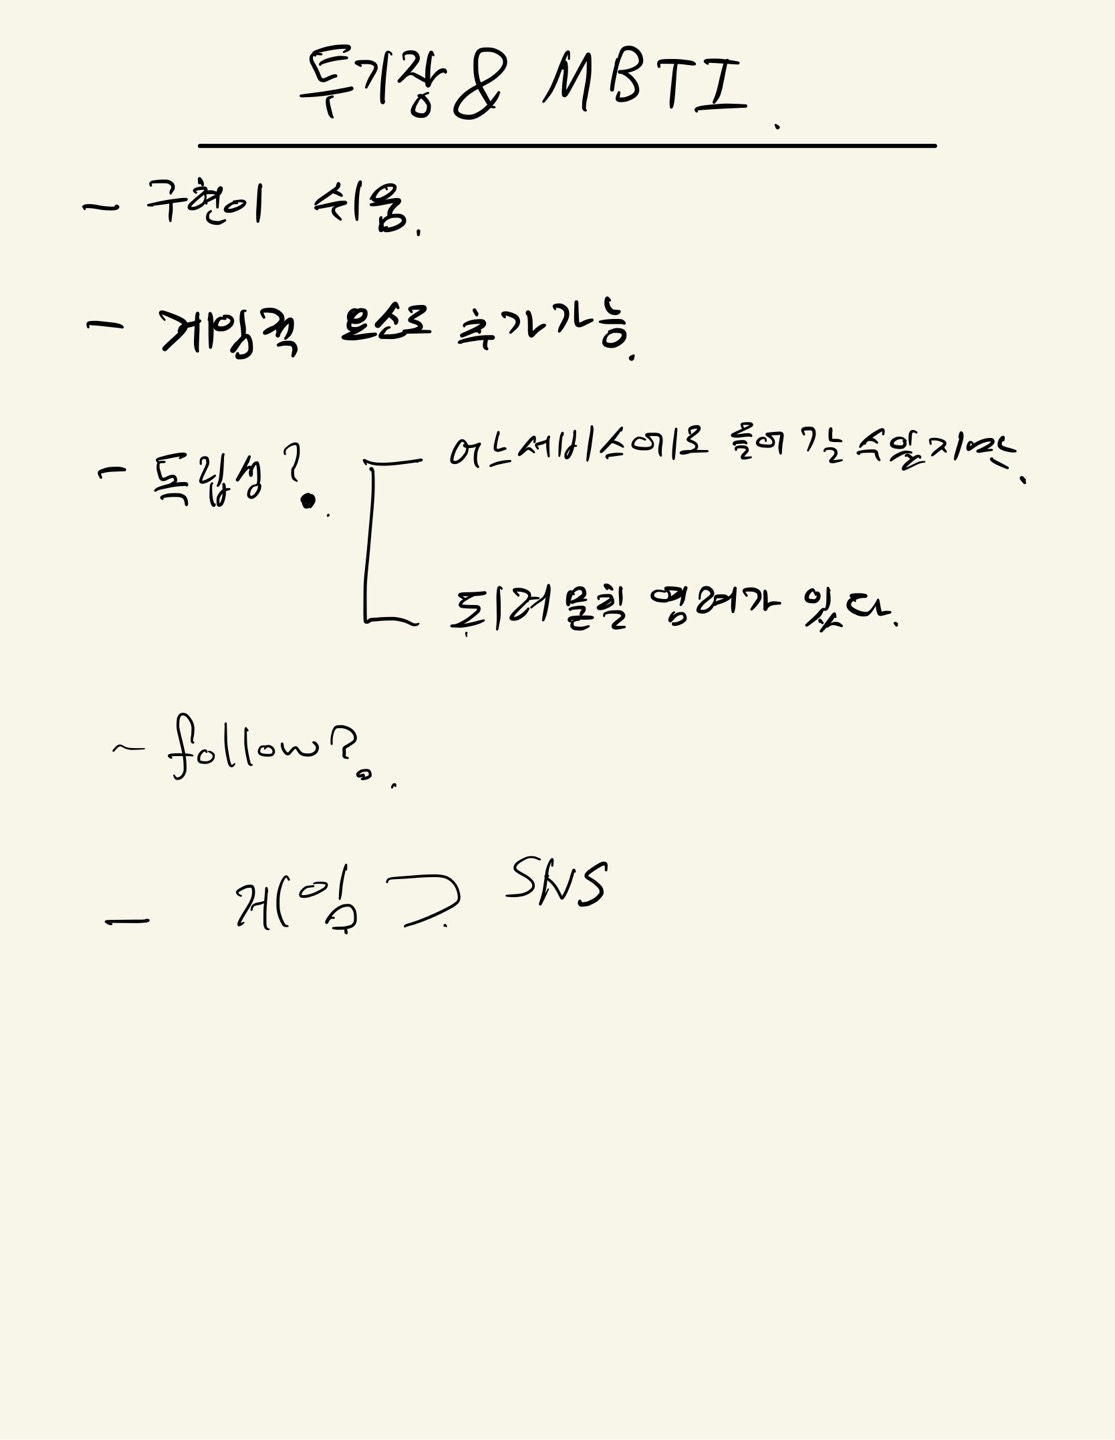 투기장 & MBTI.
- 구현이 쉬움.
- 게임적 요소로 추가가능.
- 독립성?. 어느서비스에로 들어갈 수있지만.
되려 묻힐 염려가 있다.
~ follow?.
- 게임 ⊃ SNS